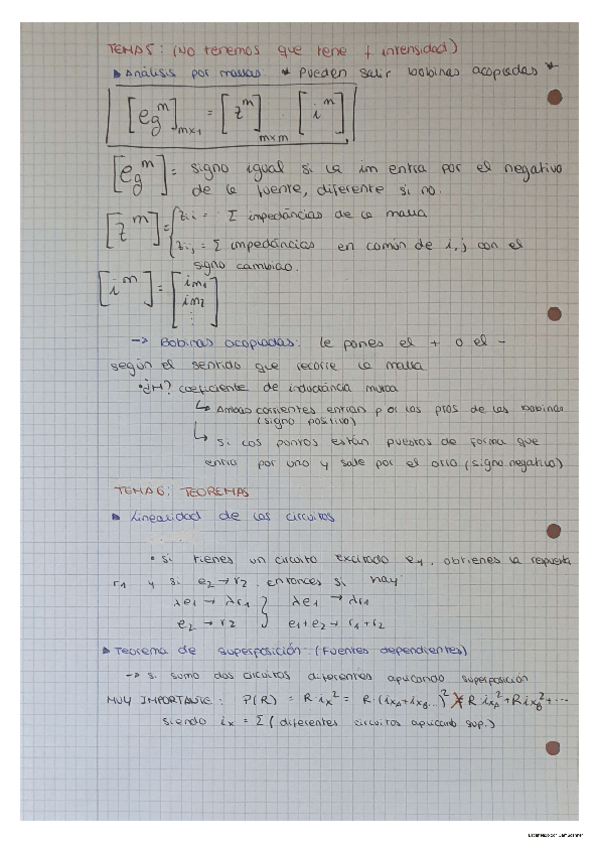 TEMA 5: (No tenemos que tene f intensidad)
▶ Análisis por mallas. * Pueden salir bobinas acopladas *
[eg^m]mx1 = [z^m]mxm · [i^m]
[eg^m] = signo igual si la im entra por el negativo
de la fuente, diferente si no.
[z^m] = { zii = Σ impedáncias de la malla
zij = Σ impedáncias en común de i,j con el
signo cambiao.
[i^m] = [im1
im2
⋮]
-> Bobinas acopladas: le pones el + o el -
según el sentido que recorre la malla
• ¿M? coeficiente de inductáncia mutua
↳ Ambas corrientes entran por los ptos de las bobinas
(signo positivo)
↳ Si los puntos están puestos de forma que
entra por uno y sale por el otro (signo negativo)
TEMA 6: TEOREMAS
▶ Linealidad de los circuitos
• Si tienes un circuito excitado e1, obtienes la respuesta
r1 y si e2 → r2 entonces si hay
λe1 → λr1 } λe1 → λr1
e2 → r2 } e1+e2 → r1+r2
▶ Teorema de superposición (Fuentes dependientes)
→ si sumo dos circuitos diferentes aplicando superposición
MUY IMPORTANTE: P(R) = R·ix² = R·(ixA+ixB...)² ≠ R·ixA²+R ixB²+...
siendo ix = Σ (diferentes circuitos aplicando sup.)